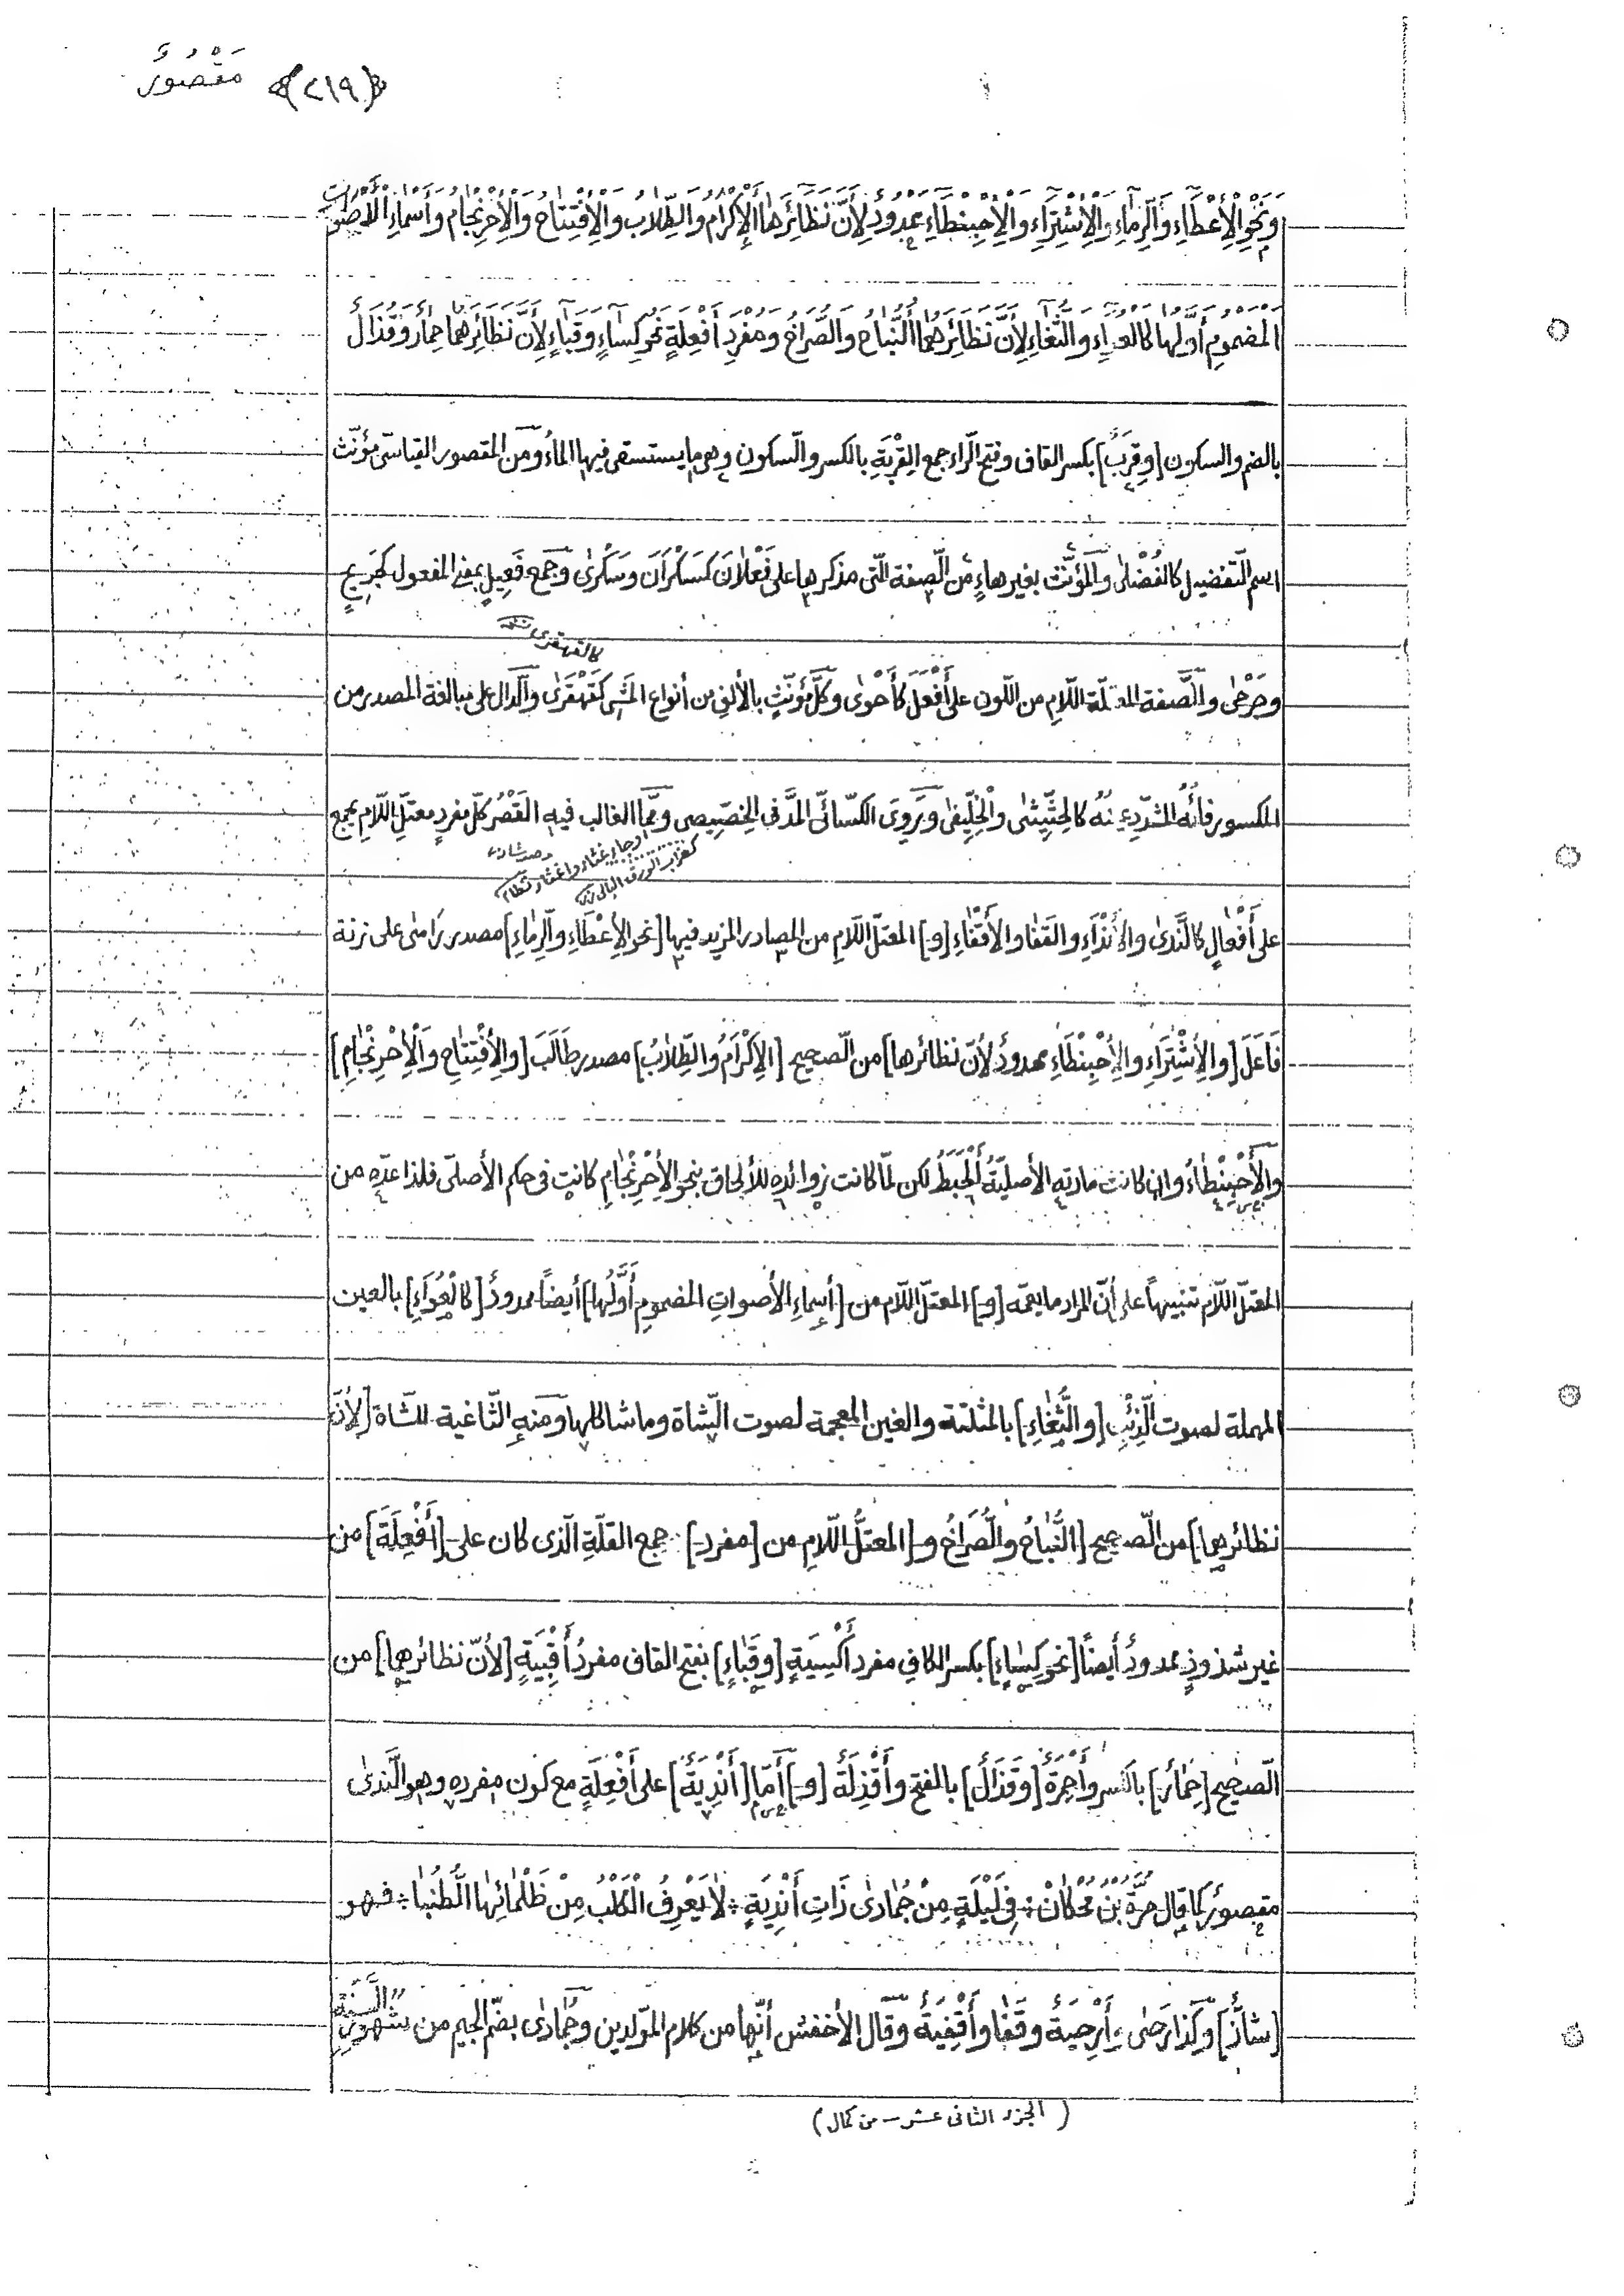 ﴿٢١٩﴾ مَقْصُورٌ
وَنَحْوُ الْإِعْطَاءِ وَالرِّمَاءِ وَالْإِشْتِرَاءِ وَالْإِحْبِنْطَاءِ مَمْدُودٌ لِأَنَّ نَظَائِرَهَا الْإِكْرَامُ وَالطِّلَابُ وَالْإِفْتِتَاحُ وَالْإِحْرِنْجَامُ وَأَسْمَاءِ الْأَصْوَاتِ
الْمَضْمُومِ أَوَّلُهَا كَالْعُوَاءِ وَالثُّغَاءِ لِأَنَّ نَظَائِرَهُمَا النُّبَاحُ وَالصُّرَاخُ وَمُفْرَدِ أَفْعِلَةٍ نَحْوُ كِسَاءٍ وَقَبَاءٍ لِأَنَّ نَظَائِرَهُمَا حِمَارٌ وَقَذَالٌ
بالضم والسكون [وقِرَبٌ] بكسر القاف وفتح الرّاء جمع القِرْبَةِ بالكسر والسّكون وهو ما يستسقى فيها الماءُ ومن المقصور القياسّى مؤنّث
اسم التّفضيل كالفُضْلىٰ والمؤنّث بغير هاءٍ من الصّفة الّتى مذكرها على فَعْلَانَ كَسَكْرَانَ وسَكْرىٰ وجمع فَعِيلٍ بمعنى المفعول كجَرِيحٍ
وجَرْحىٰ والصّفة المعتلّة اللّامِ من اللّون على أَفْعَلَ كأَحْوىٰ وكلّ مؤنّثٍ بالألفِ من أنواع المَشْىِ كقَهْقَرىٰ والدّال على مبالغة المصدر من
كالقهقرى
المكسور فائُهُ المشدّد عينُهُ كالحِثِّيثىٰ والْخِلِّيفىٰ ويَروى الكسّائىّ المدَّ فى الخِصِّيصى وممّا الغالب فيه القَصْرُ كلّ مفردٍ معتلّ اللّامِ يجمع
على أَفْعَالٍ كالنَّدىٰ والأَنْدَاءِ والقَفَا والأَقْفَاءِ [و] المعتلّ اللّامِ من المصادر المزيد فيها [نحو الإِعْطَاءِ والرِّمَاءِ] مصدر رَامىٰ على زنة
فَاعَلَ [والإِشْتِرَاءِ والإِحْبِنْطَاءِ ممدودٌ لأنّ نظائرها] من الصّحيح [الإِكْرَامُ والطِّلَابُ] مصدر طَالَبَ [والإِفْتِتَاحِ والْإِحْرِنْجَامِ]
والإِحْبِنْطَاءُ وان كانت مادته الأصليّةُ الْحَبَطُ لكن لمّا كانت زوائده للألحاق بنحو الإِحْرِنْجَامِ كانت فى حكم الأصلّى فلذا عدّه من
المعتلّ اللّام تنبيهاً على أنّ المراد ما يعمّه [و] المعتلّ اللّام من [أسماءِ الأصواتِ المضمومِ أوَّلُها] أيضاً ممدودٌ [كالْعُوَاءِ] بالعين
المهملة لصوت الذّئبِ [والثُّغَاءِ] بالمثلثة والغين المعجمة لصوت الشّاة وما شاكلها ومنه الثّاغية للشّاة [لأنّ
نظائرهما] من الصّحيح [النُّبَاحُ والصُّرَاخُ و] المعتلُّ اللّامِ من [مفرد] جمع القلّةِ الّذى كان على [أَفْعِلَةَ] من
غير شذوذٍ ممدودٌ أيضاً [نحو كِسَاءٍ] بكسر الكافِ مفرد أَكْسِيَةٍ [وقَبَاءٍ] بفتح القاف مفردُ أَقْبِيَةٍ [لأنّ نظائرهما] من
الصّحيح [حِمَارٌ] بالكسر وأَحْمِرَةٌ [وقَذَالٌ] بالفتح وأَقْذِلَةٌ [و] أَمّا [أَنْدِيَةٌ] على أَفْعِلَةٍ مع كون مفرده وهو النَّدىٰ
مقصورٌ كما قال مُرَّةُ بْنُ مَحْكَانْ: فِى لَيْلَةٍ مِنْ جُمَادىٰ ذَاتِ أَنْدِيَةٍ ÷ لَا يَعْرِفُ الْكَلْبُ مِنْ ظَلْمَائِهَا الطُّنُبَا ÷ فهو
[شاذٌّ] وكذا رَحىٰ وأَرْحِيَةٌ وقَفَا وأَقْفِيَةٌ وقال الأخفش أنّها من كلام المولّدين وجُمَادىٰ بضّم الجيم من شهور السَّنَةِ
(الجزء الثانى عشر - من كمال)